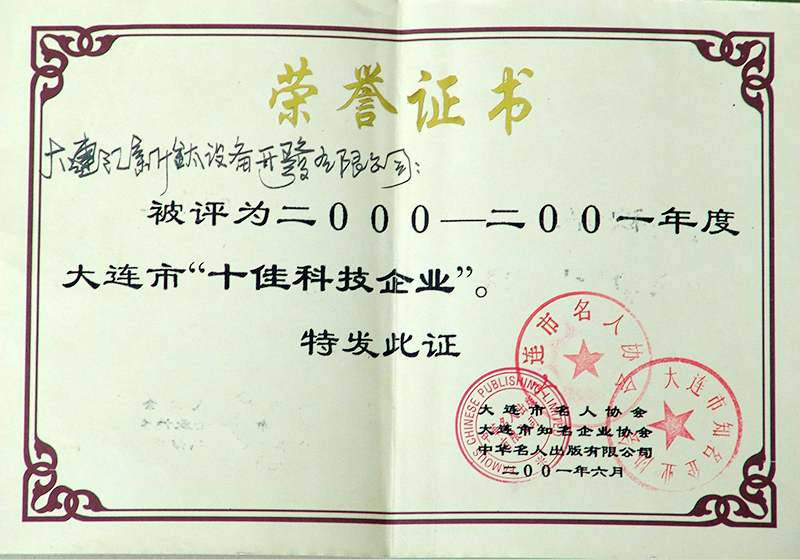 荣誉证书
设备开发有限公司：
被评为二000—二00一年度
大连市“十佳科技企业”。
特发此证
大连市名人协会
大连市知名企业协会
大连市名人协会
大连市知名企业协会
中华名人出版有限公司
二00一年六月
FAMOUS CHINESE PUBLISHING LIMITED